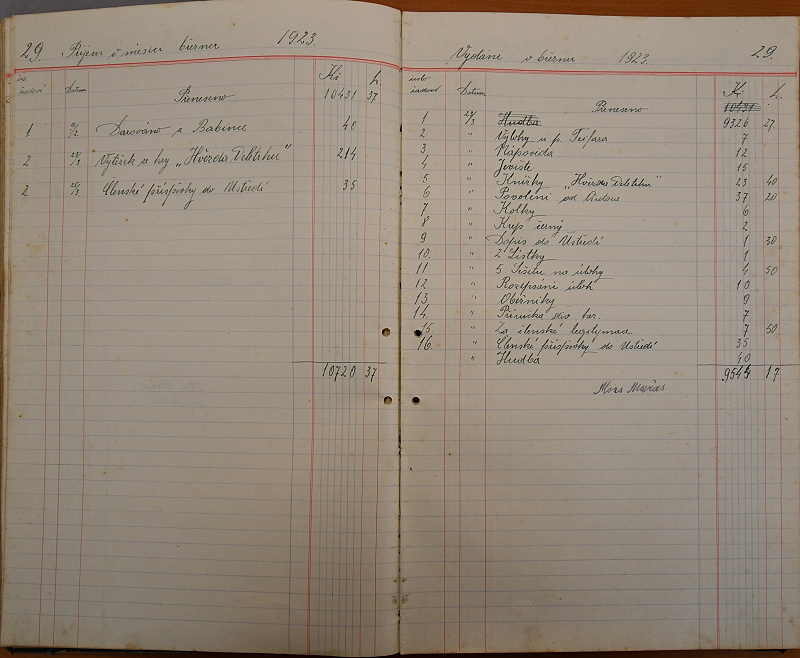 29. Příjem v měsíci březnu 1923.
čís. řadové Datum Kč h
Přeneseno 10431 37
1 9/2 Darováno z Babince 40
2 25/3 Výtěžek ze hry „Hvězda Deletehu" 214
2 25/3 Členské příspěvky do Ústředí 35
10720 37
Vydání v březnu 1923. 29.
číslo řadové Datum Kč h
Přeneseno 10431
1 24/3 Hudba 9326 27
2 " Výlohy u p. 7
3 " Nápověda 12
4 " Jeviště 15
5 " Knížky „Hvězda Deletehu" 23 40
6 " Povolení od Autora 37 20
7 " Kolky 6
8 " Krep černý 2
9 " Dopis do Ústředí 1 30
10. " 2 Lístky 1
11 " 5 Sešitů na úlohy 4 50
12 " Rozepsání úloh 10
13 " Oběžníky 9
14. " Příručka div. her. 7
15. " Za členské legitymace 7 50
16. " Členské příspěvky do Ústředí 35
" Hudba 40
9544 17